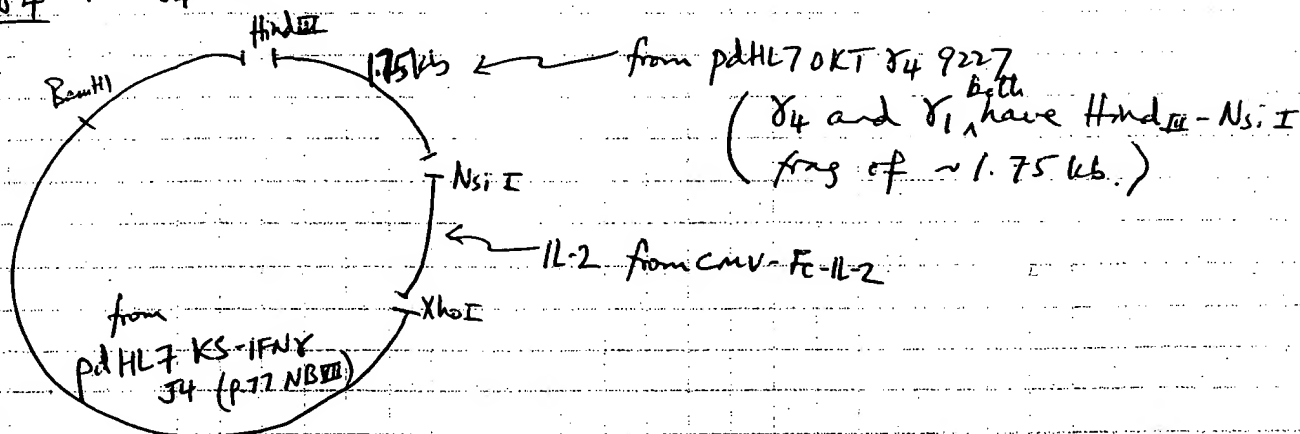 Hind III
BamHI
1.75 kb ← from pdHL7 OKT γ4 9227
(γ4 and γ1 both have Hind III - Nsi I
frag of ~1.75 kb.)
Nsi I
IL-2 from CMV-Fc-IL-2
XhoI
from
pdHL7 KS-IFNγ
J4 (p.77 NB VII)